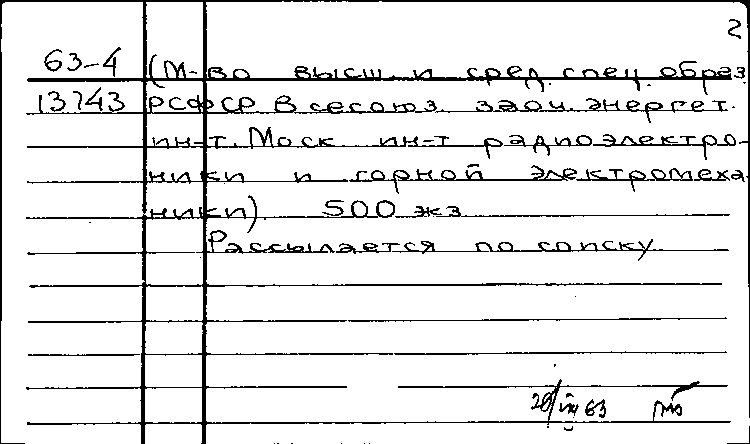 2
63-4 (М-во высш. и сред. спец. образ.
13743 РСФСР. Всесоюз. заоч. энергет.
ин-т. Моск. ин-т радиоэлектро-
ники и горной электромеха-
ники). 500 экз.
Рассылается по списку.
63